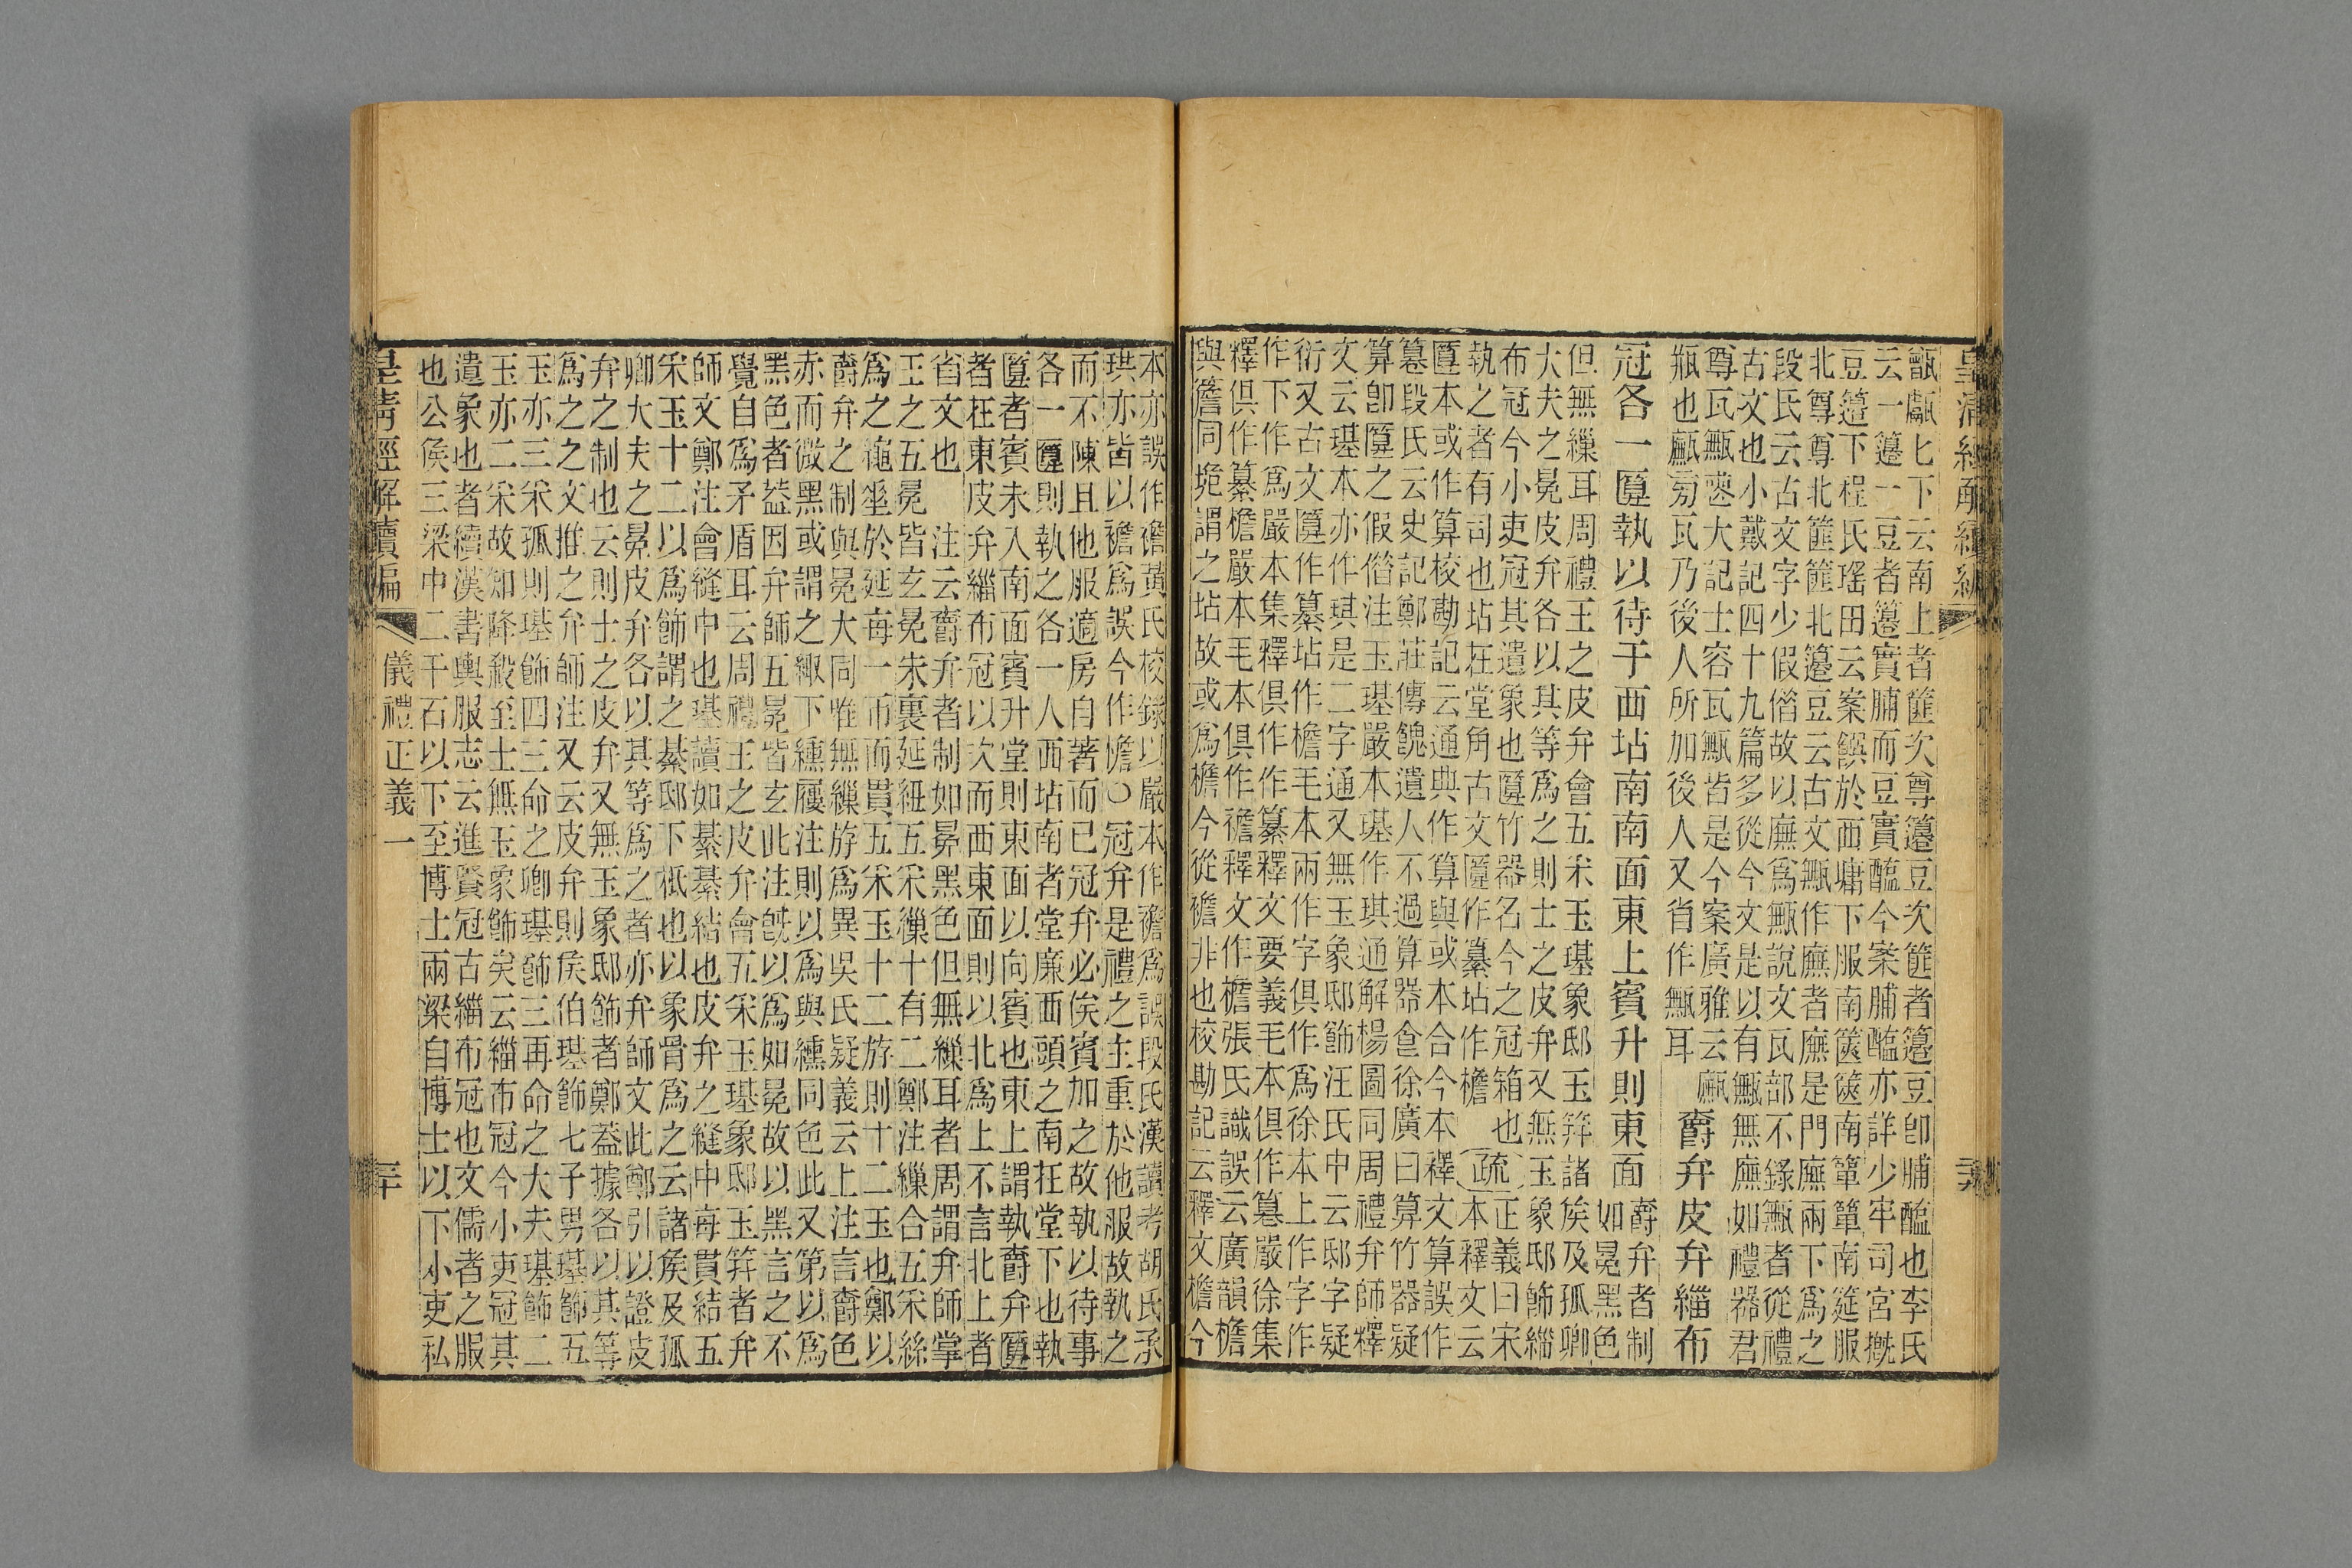 皇清經解續編
甒甗匕下云南上者篚次尊籩豆次篚者籩豆卽脯醢也李氏
云一籩一豆者籩實脯而豆實醢今案脯醢亦詳少牢司宮摡
豆籩下程氏瑤田云案饌於西墉下服南篋篋南簞簞南筵服
北尊尊北篚篚北籩豆云古文甒作廡者廡是門廡兩下爲之
段氏云古文字少假偣故以廡爲甒說文瓦部不錄甒者從禮
古文也小戴記四十九篇多從今文是以有甒無廡如禮器君
尊瓦甒喪大記士容瓦甒皆是今案廣雅云
瓶也旁瓦乃後人所加後人又省作甒耳
爵弁皮弁緇布
冠各一匴執以待于西坫南南面東上賓升則東面
爵弁者制
如冕黑色
但無繅耳周禮王之皮弁會五采玉璂象邸玉筓諸矦及孤卿
大夫之冕皮弁各以其等爲之則士之皮弁又無玉象邸飾緇
布冠今小吏冠其遺象也匴竹器名今之冠箱也
執之者有司也坫在堂角古文匴作纂坫作檐
疏
正義曰宋
本釋文云
匴本或作算校勘記云通典作算與或本合今本釋文算誤作
篹段氏云史記鄭莊傳餽遺人不過算器徐廣曰算竹器疑
算卽匴之假偣注玉璂嚴本璂作琪通解楊圖同周禮弁師釋
文云璂本亦作琪是二字通又無玉象邸飾汪氏中云邸字疑
衍又古文匴作纂坫作檐毛本兩作字俱作爲徐本上作字作
作下作爲嚴本集釋俱作作纂釋文要義毛本俱作篹嚴徐集
釋俱作纂檐嚴本毛本俱作襜釋文作檐張氏識誤云廣韻檐
與簷同垝謂之坫故或爲檐今從襜非也校勘記云釋文檐今
本亦誤作襜黃氏校錄以嚴本作襜爲誤段氏漢讀考胡氏承
珙亦皆以襜爲誤今作檐○冠弁是禮之主重於他服故執之
而不陳且他服適房自著而已冠弁必俟賓加之故執以待事
各一匴則執之各一人西坫南者堂廉西頭之南在堂下也執
匴者賓未入南面賓升堂則東面以向賓也東上謂執爵弁匴
者在東皮弁緇布冠以次而西東面則以北爲上不言北上者
省文也　注云爵弁者制如冕黑色但無繅耳者周謂弁師掌
王之五冕皆玄冕朱裏延紐五采繅十有二鄭注繅合五采絲
爲之繩垂於延每一帀而貫五采玉十二斿則十二玉也鄭以
爵弁之制與冕大同唯無繅斿爲異吳氏疑義云上注言爵色
赤而微黑或謂之緅下纁屨注則以爲與纁同色此又第以爲
黑色者葢因弁師五冕皆玄此注旣以爲如冕故以黑言之不
覺自爲矛盾耳云周禮王之皮弁會五采玉璂象邸玉筓者弁
師文鄭注會縫中也璂讀如綦綦結也皮弁之縫中每貫結五
采玉十二以爲飾謂之綦邸下柢也以象骨爲之云諸矦及孤
卿大夫之冕皮弁各以其等爲之者亦弁師文此鄭引以證皮
弁之制也云則士之皮弁又無玉象邸飾者鄭葢據各以其等
爲之之文推之弁師注又云皮弁則矦伯璂飾七子男璂飾五
玉亦三采孤則璂飾四三命之卿璂飾三再命之大夫璂飾二
玉亦二采故知降殺至士無玉象飾矣云緇布冠今小吏冠其
遺象也者續漢書輿服志云進賢冠古緇布冠也文儒者之服
也公矦三梁中二千石以下至博士兩梁自博士以下小吏私
皇清經解續編
儀禮正義一
三十